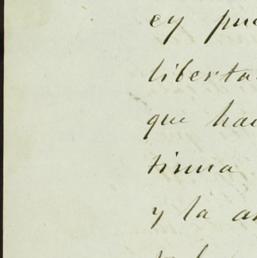 ey pu
liberta
que ha
tinua
y la a